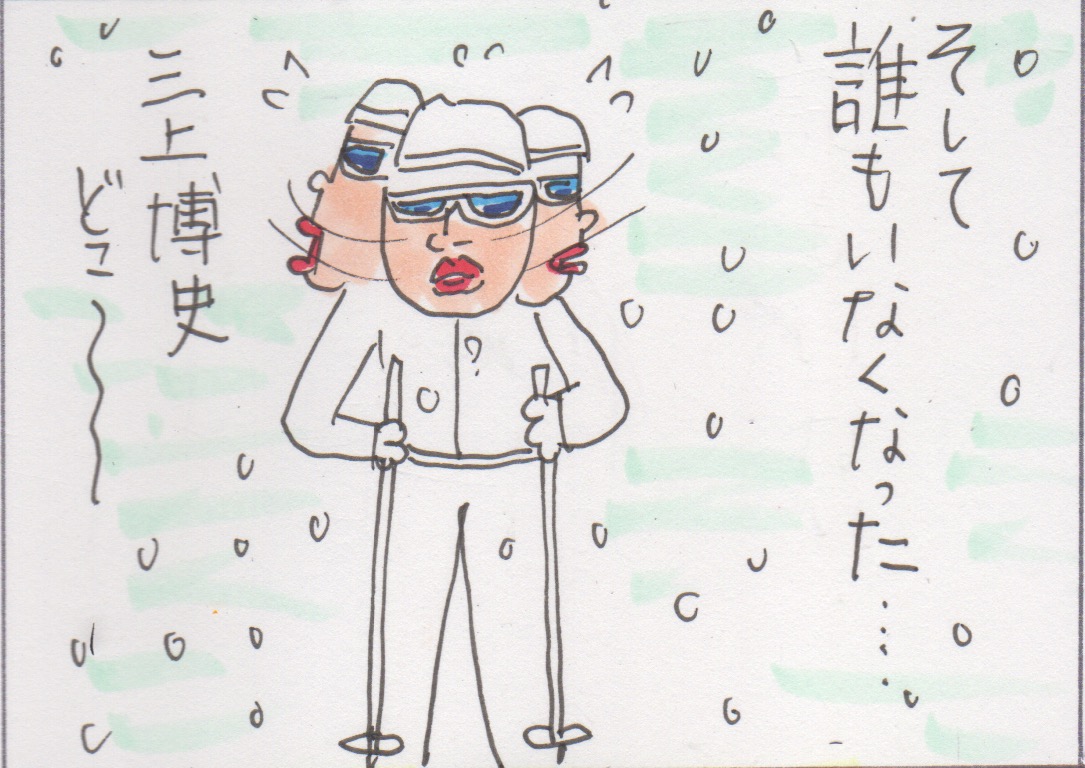 そして
誰もいなくなった……
三上博史
どこ〜